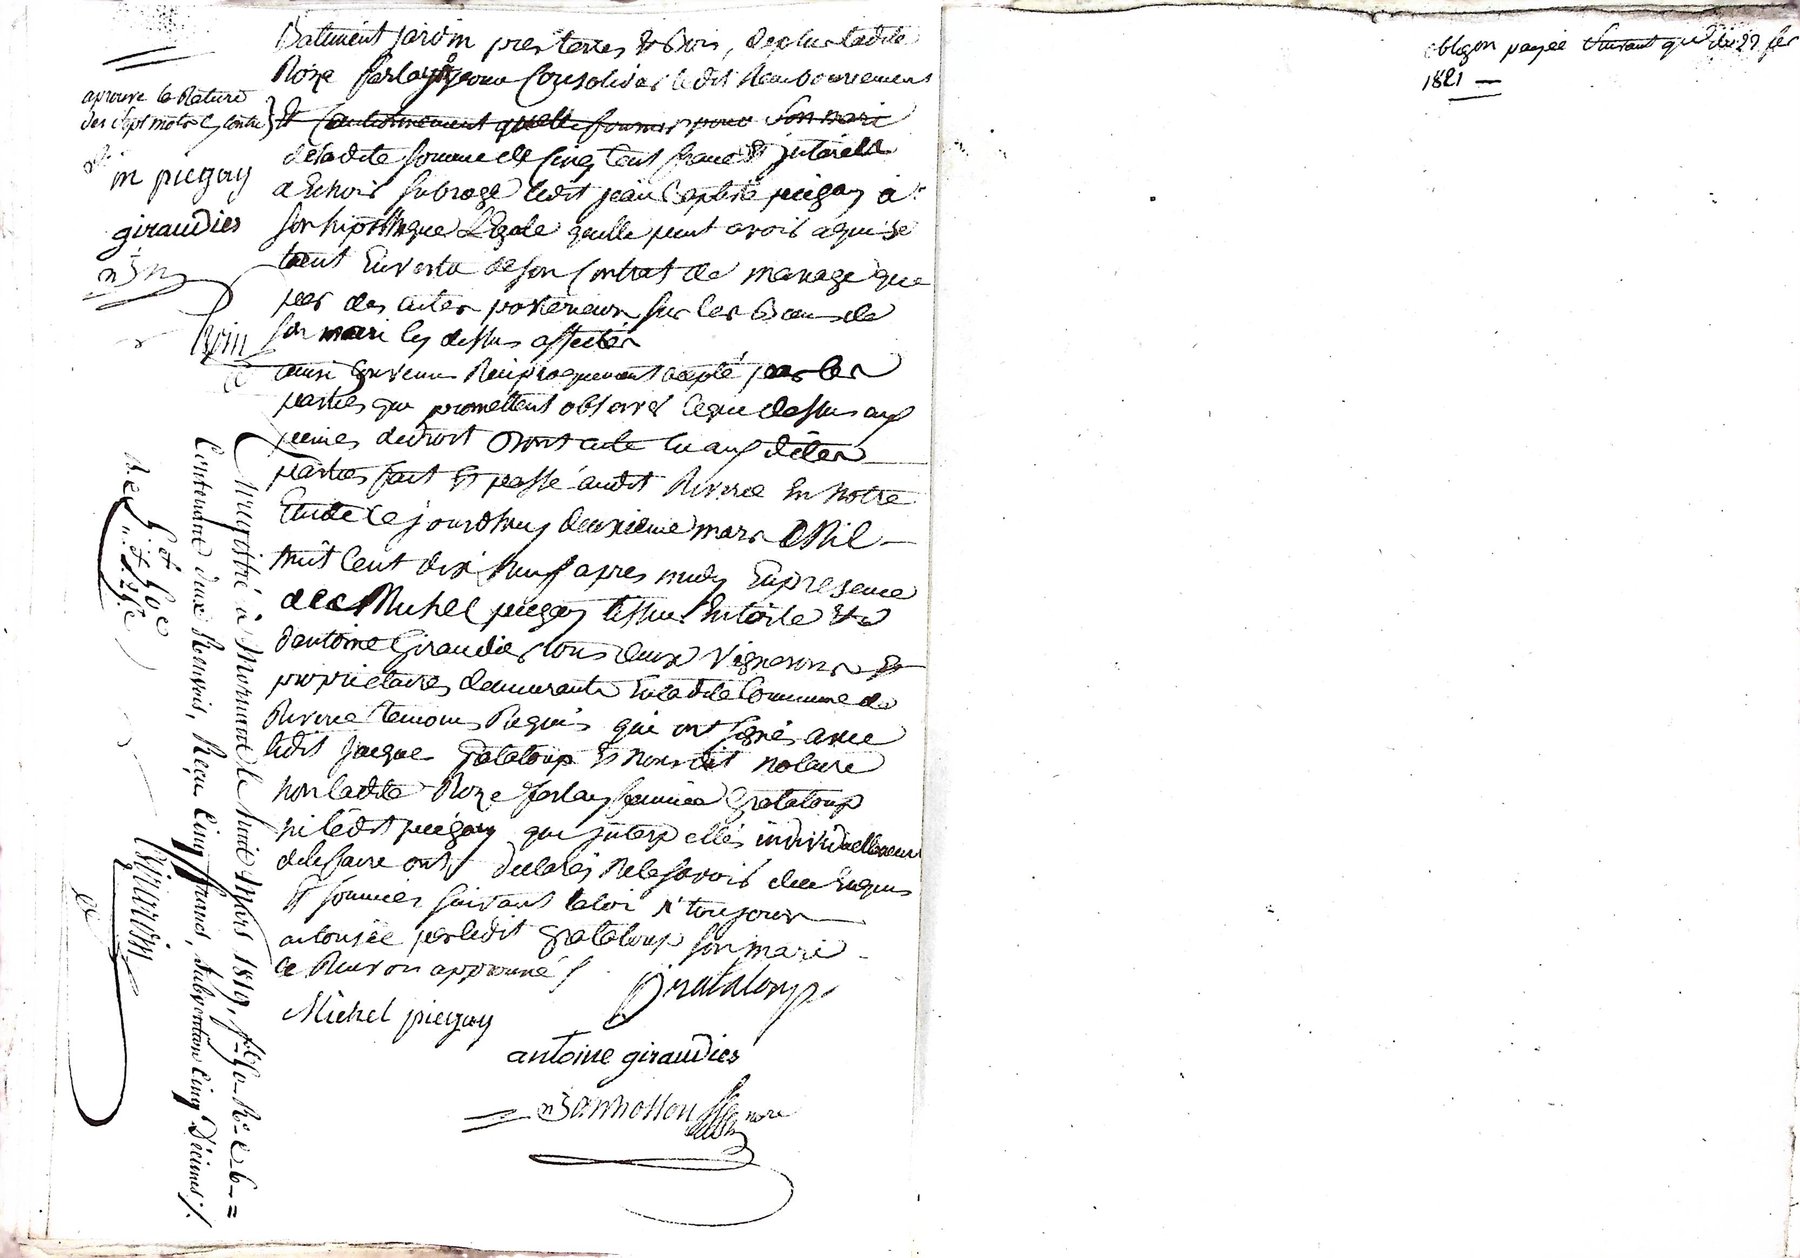 Batiment jardin pres terres & Bois, de plus ladite
Roze ferlay pour Consolider ledit Rembourcement
& Cautionnement quelle fournit pour son mari
de ladite somme de Cinq Cent francs & jnterets
a Echoir subroge ledit jean Baptiste piegay a
son hipotheque Legale quelle peut avoir aquise
tant En vertu de son Contrat de mariage que
par des actes posterieurs sur les Biens de
son mari Cy dessus affectés
ainsi Convenu Reciproquement accepté par les
parties qui promettent observer ceque dessus aux
peines de droit Dont acte lu aux dites
parties fait & passé audit Riverie En notre
Etude Ce jourdhuy deuxieme mars Mil
huit Cent dix neuf apres midy En presence
de Michel piegay tissur En toile &
d'antoine Giraudier tous deux vignerons &
proprietaires demeurants En ladite Commune de
Riverie temoins Requis qui ont signés avec
ledit jacque Grataloup & nous dit notaire
non ladite Roze ferlay femme Grataloup
ni ledit piegay qui jnterpellés individuellement
de le faire ont declarés ne le savoir de ce Enquis
& sommés suivant la loi & toujours
autorisée par ledit Grataloup son mari
le Renvoi approuvé
Grataloup
Michel piegay
antoine giraudier
nore
aprouve la Rature
des sept mots Cy Contre
m piegay
giraudier
Enregistré à Mornant le huit Mars 1819, fo 50 Ro C 6
Contenant deux Renvois, Reçu Cinq francs, subvention Cinq Décimes
obligon payée Suivant qce du 27 fer
1821